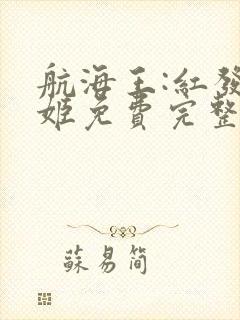 航海王:紅發
姬免費完整
蘇易簡